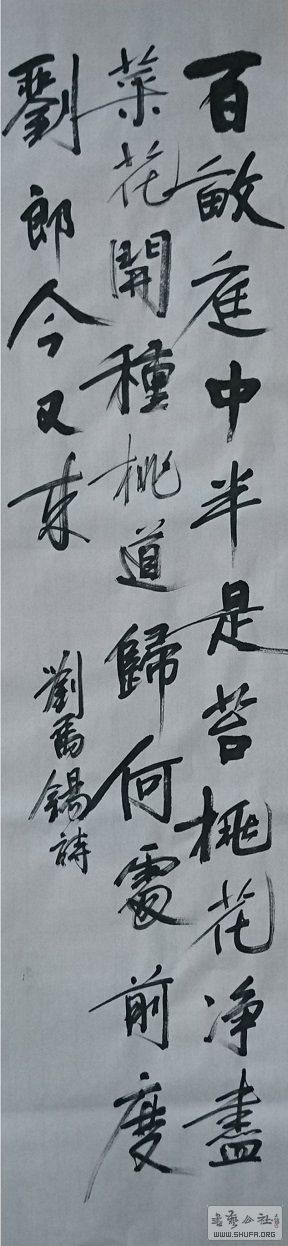 百畝庭中半是苔桃花净盡
菜花開種桃道歸何處前度
劉郎今又來
劉禹錫詩
書法公社
WWW.SHUFA.ORG